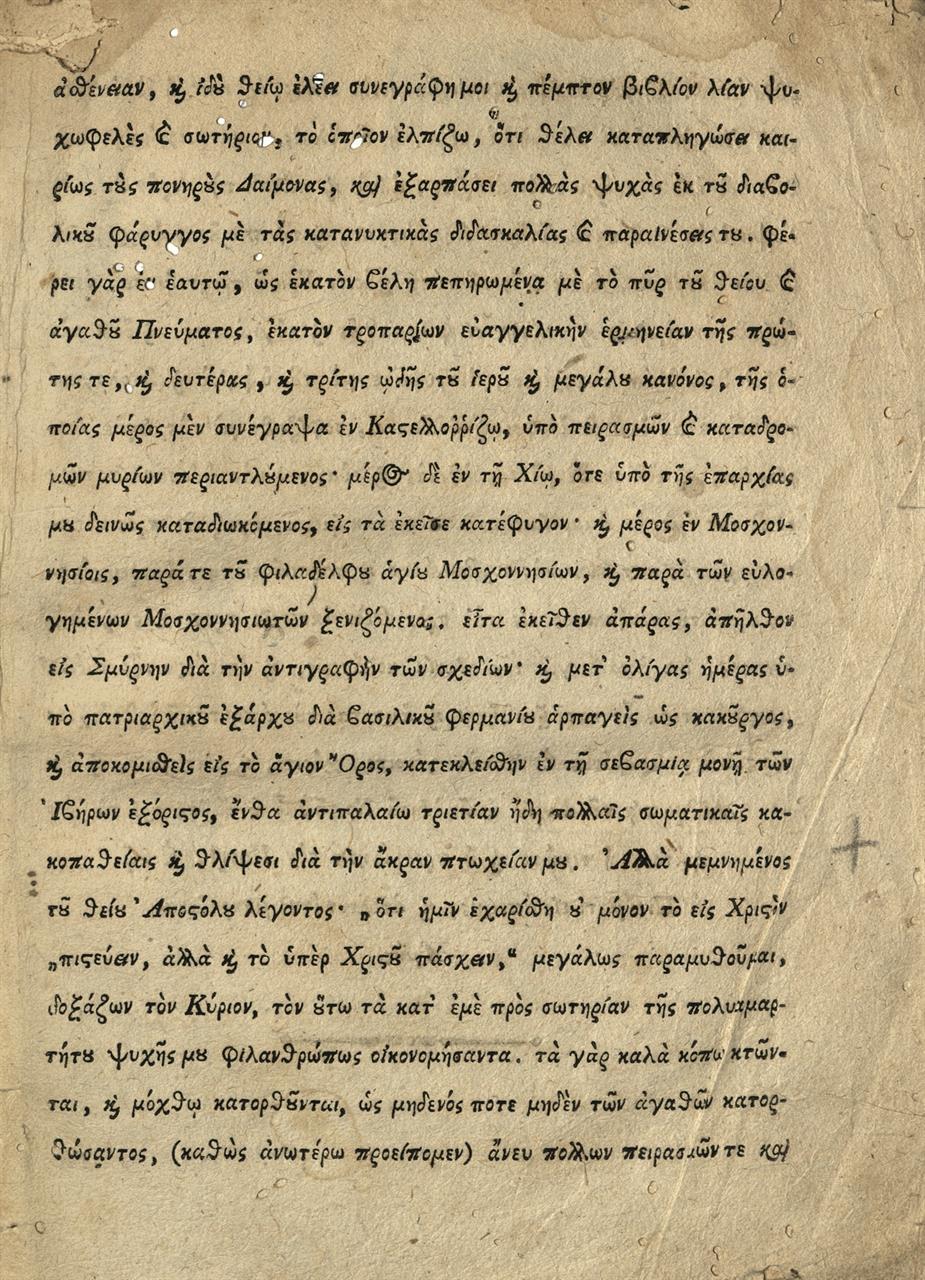 ἀσθένειαν, ϗ ἰδοὺ θείῳ ἐλέει συνεγράφη μοι ϗ πέμπτον βιβλίον λίαν ψυ-
χωφελὲς ϗ σωτήριον, τὸ ὁποῖον ἐλπίζω, ὅτι θέλει καταπληγώσει και-
ρίως τοὺς πονηροὺς Δαίμονας, καὶ ἐξαρπάσει πολλὰς ψυχὰς ἐκ τοῦ διαβο-
λικοῦ φάρυγγος μὲ τὰς κατανυκτικὰς διδασκαλίας ϗ παραινέσεις του. φέ-
ρει γὰρ ἐν ἑαυτῷ, ὡς ἑκατὸν βέλη πεπηρωμένα μὲ τὸ πῦρ τοῦ θείου ϗ
ἀγαθοῦ Πνεύματος, ἑκατὸν τροπαρίων εὐαγγελικὴν ἑρμηνείαν τῆς πρώ-
της τε, ϗ δευτέρας, ϗ τρίτης ᾠδῆς τοῦ ἱεροῦ ϗ μεγάλου κανόνος, τῆς ὁ-
ποίας μέρος μὲν συνέγραψα ἐν Καστελλοῤῥίζῳ, ὑπὸ πειρασμῶν ϗ καταδρο-
μῶν μυρίων περιαντλούμενος· μέρος δὲ ἐν τῇ Χίῳ, ὅτε ὑπὸ τῆς ἐπαρχίας
μου δεινῶς καταδιωκόμενος, εἰς τὰ ἐκεῖσε κατέφυγον· ϗ μέρος ἐν Μοσχον-
νησίοις, παρά τε τοῦ φιλαδέλφου ἁγίου Μοσχοννησίων, ϗ παρὰ τῶν εὐλο-
γημένων Μοσχοννησιωτῶν ξενιζόμενος. εἶτα ἐκεῖθεν ἀπάρας, ἀπῆλθον
εἰς Σμύρνην διὰ τὴν ἀντιγραφὴν τῶν σχεδίων· ϗ μετ' ὀλίγας ἡμέρας ὑ-
πὸ πατριαρχικοῦ ἐξάρχου διὰ βασιλικοῦ φερμανίου ἁρπαγεὶς ὡς κακοῦργος,
ϗ ἀποκομισθεὶς εἰς τὸ ἅγιον Ὄρος, κατεκλείσθην ἐν τῇ σεβασμίᾳ μονῇ τῶν
Ἰβήρων ἐξόριστος, ἔνθα ἀντιπαλαίω τριετίαν ἤδη πολλαῖς σωματικαῖς κα-
κοπαθείαις ϗ θλίψεσι διὰ τὴν ἄκραν πτωχείαν μου. Ἀλλὰ μεμνημένος
τοῦ θείου Ἀποστόλου λέγοντος· „ὅτι ἡμῖν ἐχαρίσθη οὐ μόνον τὸ εἰς Χριστὸν
„πιστεύειν, ἀλλὰ ϗ τὸ ὑπὲρ Χριστοῦ πάσχειν,“ μεγάλως παραμυθοῦμαι,
δοξάζων τὸν Κύριον, τὸν οὕτω τὰ κατ' ἐμὲ πρὸς σωτηρίαν τῆς πολυαμαρ-
τήτου ψυχῆς μου φιλανθρώπως οἰκονομήσαντα. τὰ γὰρ καλὰ κόπῳ κτῶν-
ται, ϗ μόχθῳ κατορθοῦνται, ὡς μηδενός ποτε μηδὲν τῶν ἀγαθῶν κατορ-
θώσαντος, (καθὼς ἀνωτέρω προείπομεν) ἄνευ πολλων πειρασμῶν τε καὶ